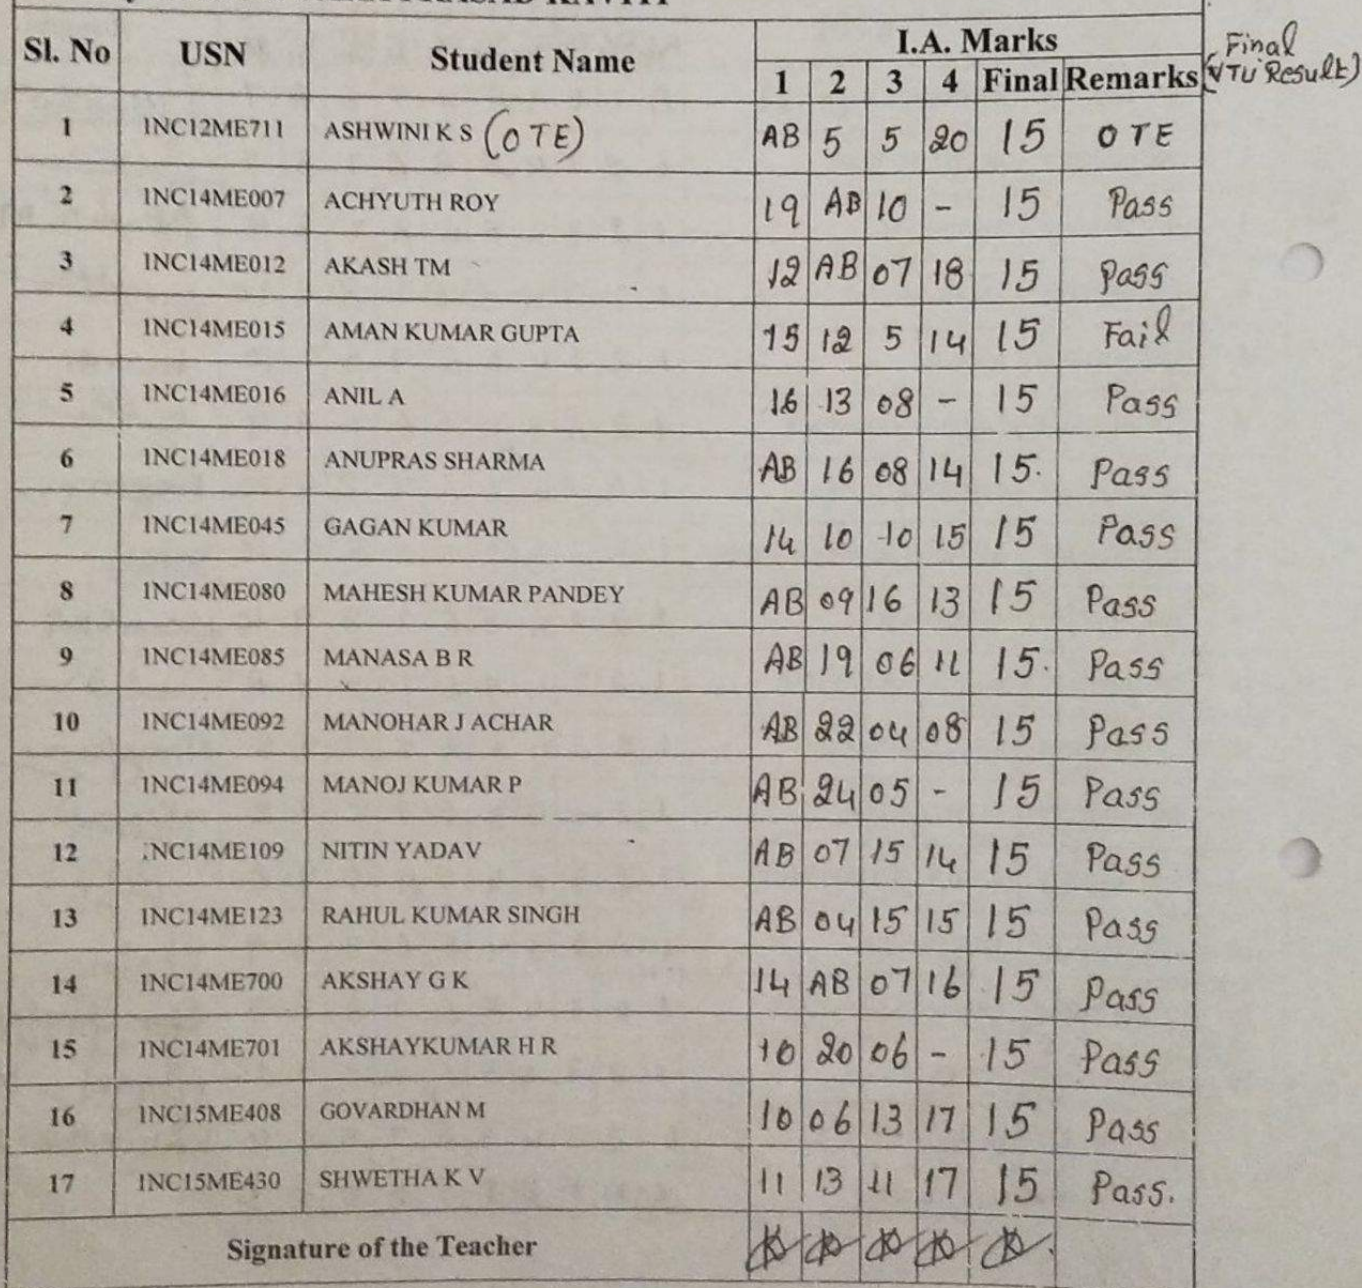 Sl. No USN Student Name I.A. Marks Final
1 2 3 4 Final Remarks (VTU Result)
1 1NC12ME711 ASHWINI K S (OTE) AB 5 5 20 15 OTE
2 1NC14ME007 ACHYUTH ROY 19 AB 10 - 15 Pass
3 1NC14ME012 AKASH TM 12 AB 07 18 15 Pass
4 1NC14ME015 AMAN KUMAR GUPTA 15 12 5 14 15 Fail
5 1NC14ME016 ANIL A 16 13 08 - 15 Pass
6 1NC14ME018 ANUPRAS SHARMA AB 16 08 14 15. Pass
7 1NC14ME045 GAGAN KUMAR 14 10 10 15 15 Pass
8 1NC14ME080 MAHESH KUMAR PANDEY AB 09 16 13 15 Pass
9 1NC14ME085 MANASA B R AB 19 06 11 15. Pass
10 1NC14ME092 MANOHAR J ACHAR AB 22 04 08 15 Pass
11 1NC14ME094 MANOJ KUMAR P AB 24 05 - 15 Pass
12 1NC14ME109 NITIN YADAV AB 07 15 14 15 Pass
13 1NC14ME123 RAHUL KUMAR SINGH AB 04 15 15 15 Pass
14 1NC14ME700 AKSHAY G K 14 AB 07 16 15 Pass
15 1NC14ME701 AKSHAYKUMAR H R 10 20 06 - 15 Pass
16 1NC15ME408 GOVARDHAN M 10 06 13 17 15 Pass
17 1NC15ME430 SHWETHA K V 11 13 11 17 15 Pass.
Signature of the Teacher